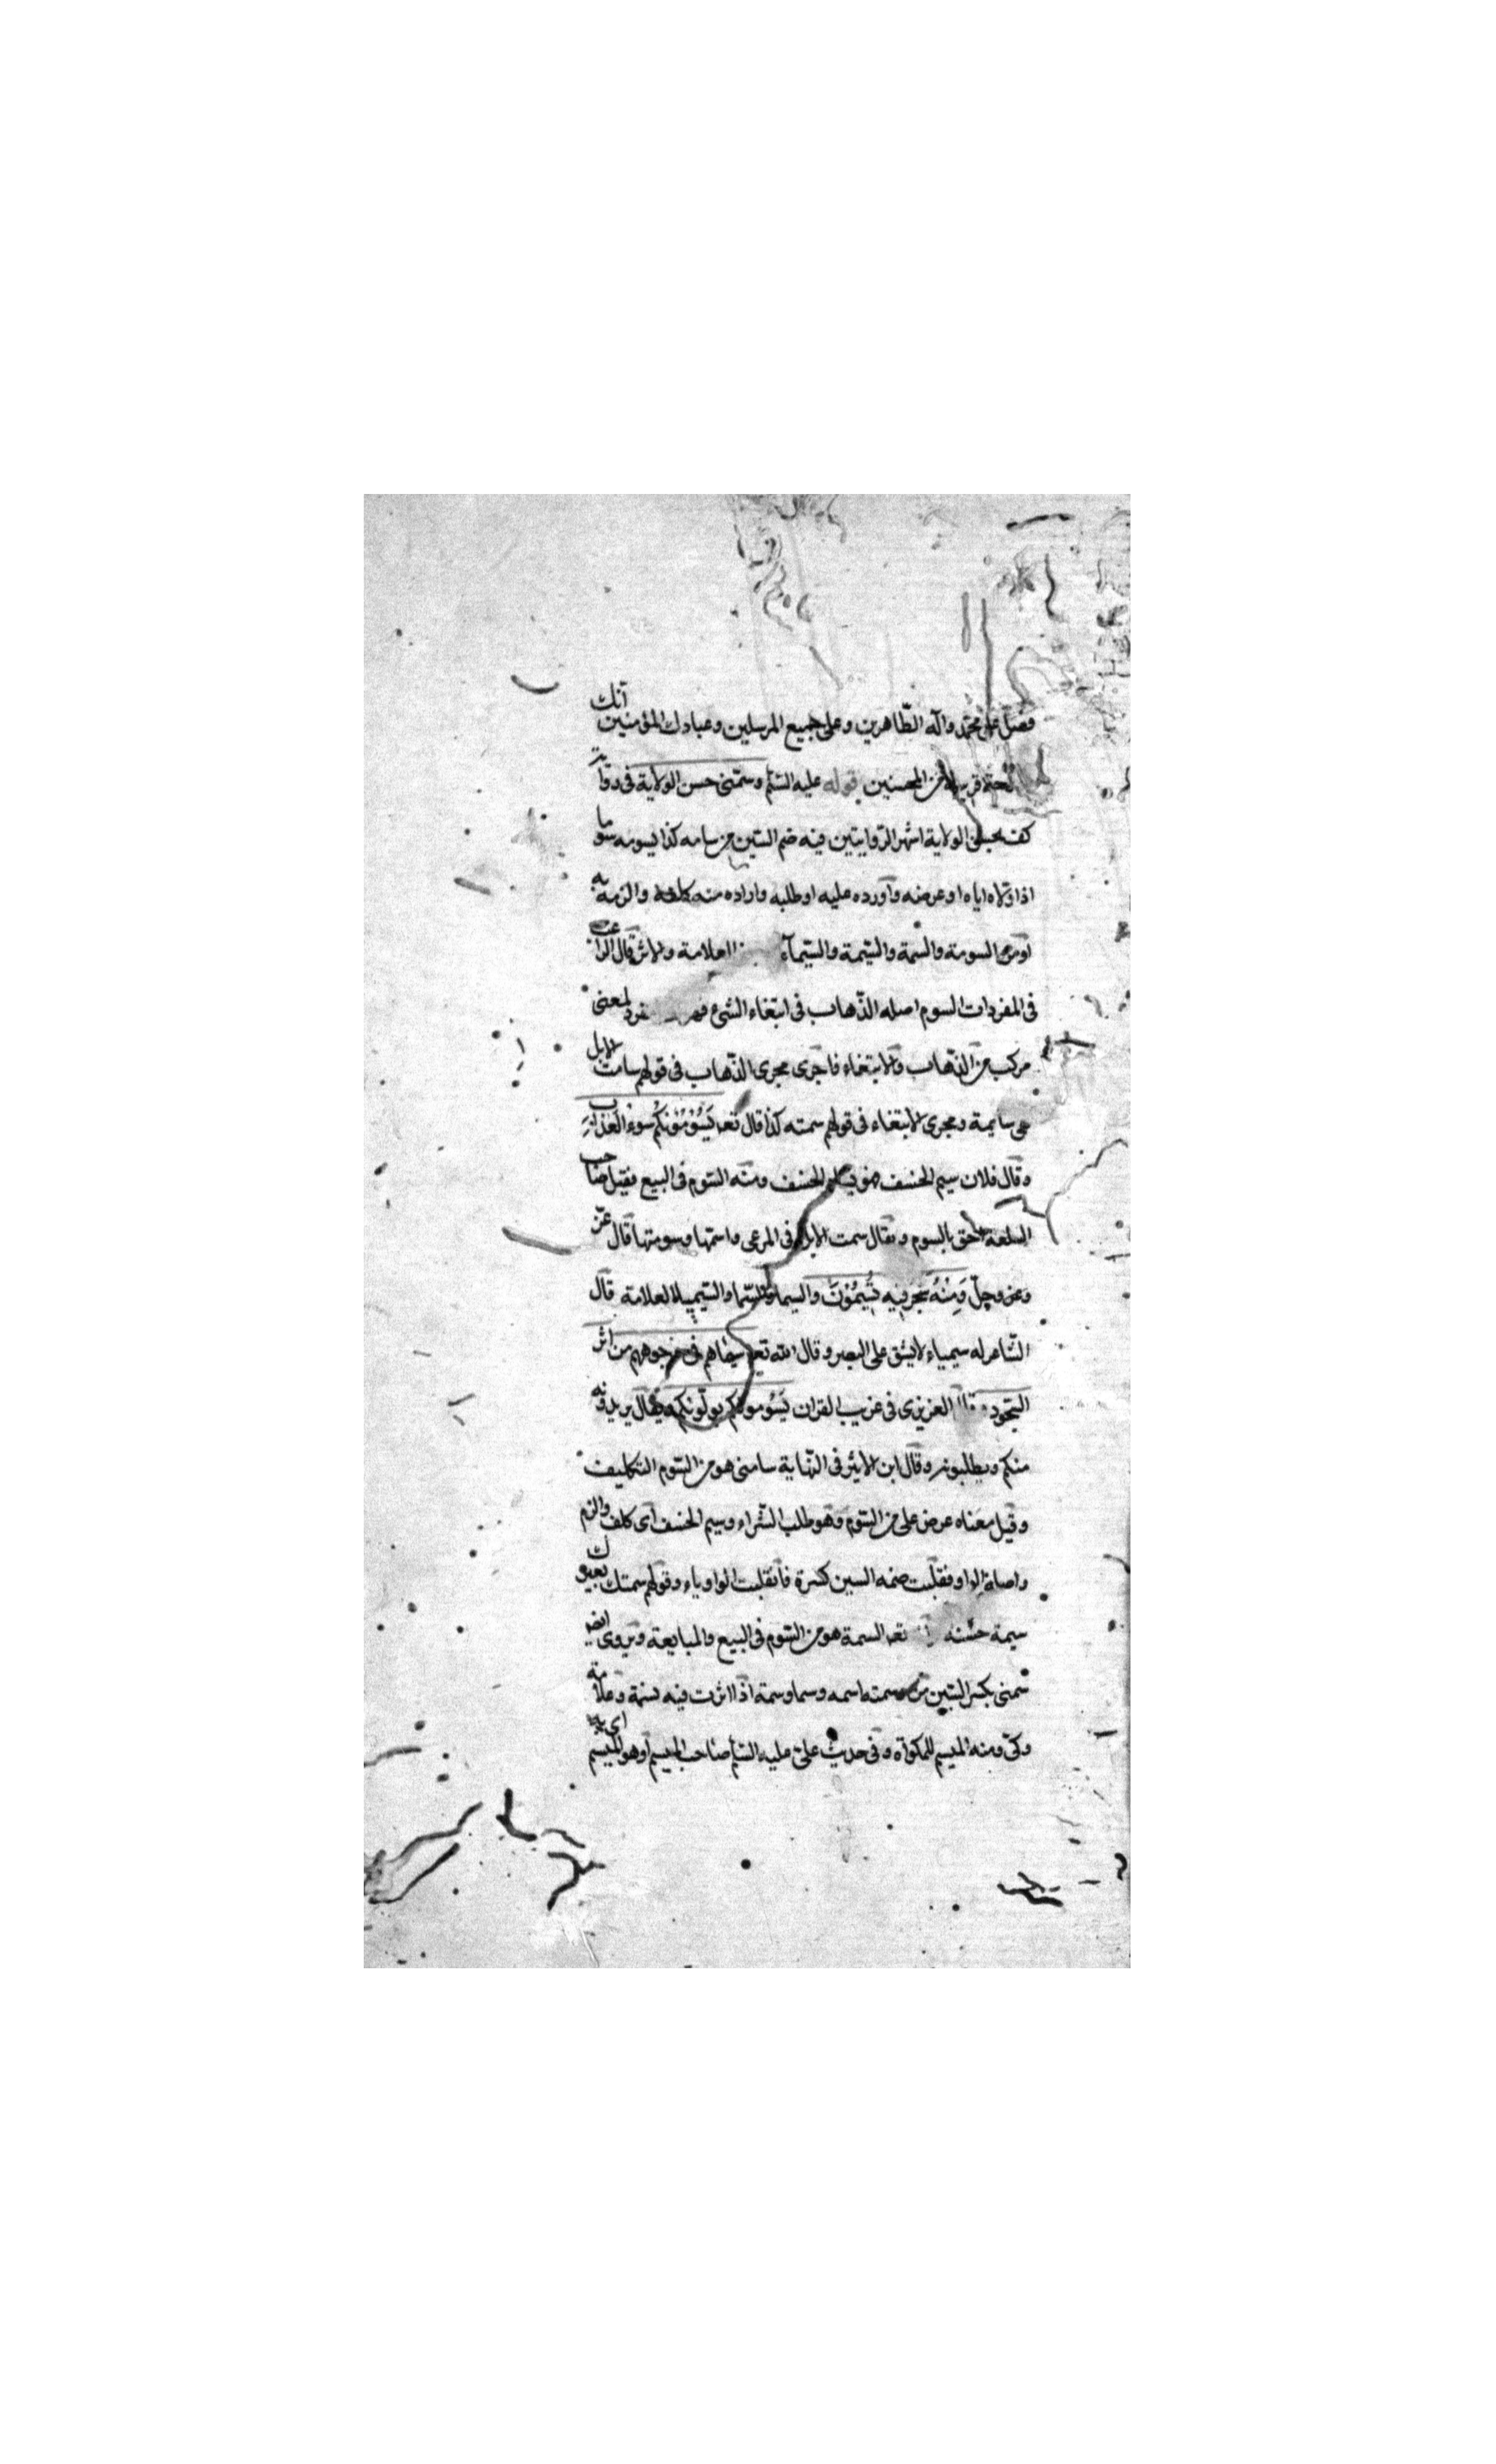 فصلّ على محمّد وآله الطّاهرين وعلى جميع المرسلين وعبادك المؤمنين انك
قريب من المحسنين قوله عليه السّلم وسمّنى حسن الولاية فى دقا
كف بحسن الولاية اشهر الرّوايتين فيه ضم السّين من سامه كذا يسومه سوما
اذا اولاه اياه او عرضه وآورده عليه او طلبه واراده منه والزمه به
او من السومة والسمة والسّيمة والسّيمآء العلامة والاثر قال الراغب
فى المفردات السوم اصله الذّهاب فى ابتغاء الشىء لمعنى
مركب من الذّهاب والابتغاء فاجرى مجرى الذّهاب فى قولهم سامت الابل
هى سايمة ومجرى الابتغاء فى قولهم سمته كذا قال تعه يَسُوْمُوْنَكُم سوء العَذاب
وقال فلان سيم الخسف فهو يسام الخسف ومنه السّوم فى البيع فقيل صاحب
السلعة احق بالسوم ويقال سمت الابل فى المرعى واسمتها وسومتها قال عزّ
وعز وجلّ وَمِنْهُ شجر فيه تُسِيمُوْنَ والسيما والسّيمياء العلامة قال
الشّاعر له سيمياء لا يشق على البصر وقال الله تعه سيماهم فى وجوههم من اثر
السّجود العزيزى فى غريب القران يَسُومونكم يولّونكم يريدونه
منكم ويطلبونه وقال ابن الاثير فى النّهاية سامنى هو من السّوم التكليف
وقيل معناه عرض على من السّوم وهو طلب الشّراء وسيم الخسف اى كلف والزم
واصله الواو فقلبت ضمه السين كسرة فانقلبت الواو ياء وقولهم سمتك بعيرك
سيمة حسنه السمة هو من السّوم فى البيع والمبايعة ويروى ايضا
سمنى بكسر السّين من وسمته اسمه وسما وسمة اذا اثرت فيه بسمة وعلامة
وكىّ ومنه الميسم للمكواة وفى حديث على عليه السّلم صاحب الميسم اى وهو الميسم